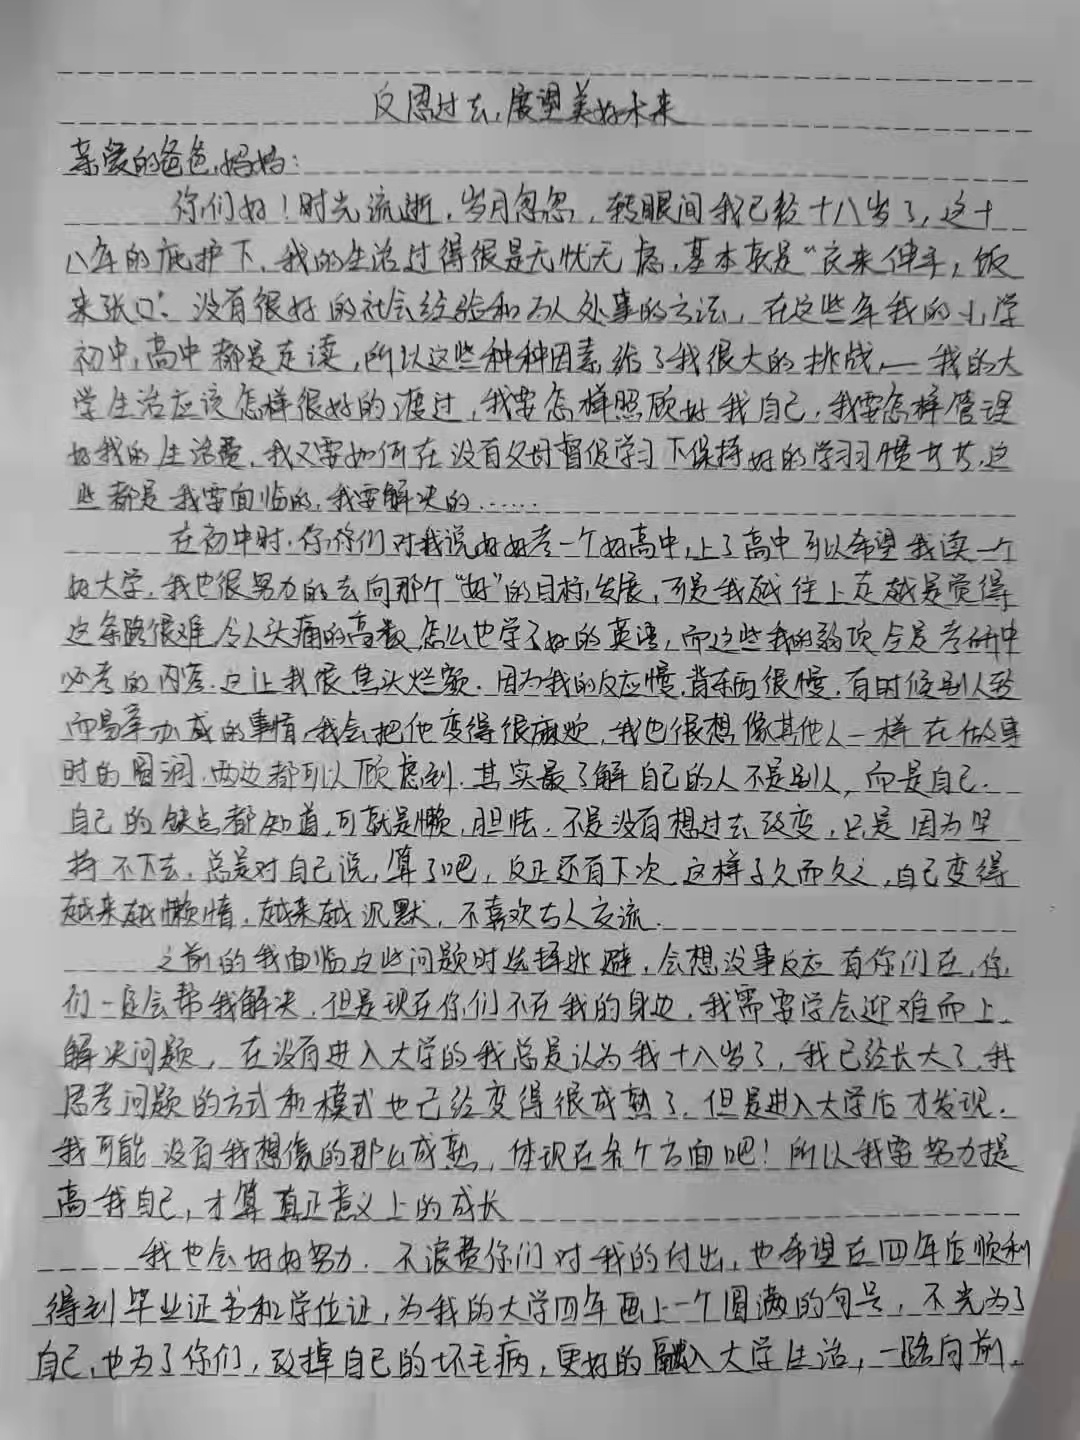 反思过去,展望美好未来
亲爱的爸爸,妈妈:
你们好!时光流逝,岁月忽忽,转眼间我已经十八岁了,这十
八年的庇护下,我的生活过得很是无忧无虑,基本就是“衣来伸手,饭
来张口”。没有很好的社会经验和为人处事的方法,在这些年我的小学
初中,高中都是走读,所以这些种种因素给了我很大的挑战,—我的大
学生活应该怎样很好的渡过,我要怎样照顾好我自己,我要怎样管理
好我的生活费,我又要如何在没有父母督促学习下保持好的学习习惯等等,这
些都是我要面临的,我要解决的……
在初中时,你们对我说好好考一个好高中,上了高中可以希望我读一个
好大学,我也很努力的去向那个“好”的目标,发展,可是我越往上走越是觉得
这条路很难,令人头痛的高数,怎么也学不好的英语,而这些我的弱项会是考研中
必考的内容,这让我很焦头烂额.因为我的反应慢,背东西很慢,有时候别人轻
而易举办成的事情,我会把他变得很麻烦,我也很想像其他人一样在做事
时的圆润,两边都可以顾虑到.其实最了解自己的人不是别人,而是自己.
自己的缺点都知道,可就是懒,胆怯.不是没有想过去改变,只是因为坚
持不下去,总是对自己说,算了吧,反正还有下次,这样子久而久之,自己变得
越来越懒惰,越来越沉默,不喜欢与人交流.
之前的我面临这些问题时选择逃避,会想没事反应有你们在,你
们一定会帮我解决,但是现在你们不在我的身边,我需要学会迎难而上,
解决问题,在没有进入大学的我总是认为我十八岁了,我已经长大了,我
思考问题的方式和模式也已经变得很成熟了,但是进入大学后才发现.
我可能没有我想像的那么成熟,体现在各个方面吧!所以我要努力提
高我自己,才算真正意义上的成长
我也会好好努力.不浪费你们对我的付出,也希望在四年后顺利
得到毕业证书和学位证,为我的大学四年画上一个圆满的句号,不光为了
自己,也为了你们,改掉自己的坏毛病,更好的融入大学生活,一路向前.